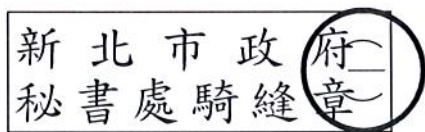 新北市政府
秘書處騎縫章
(一)